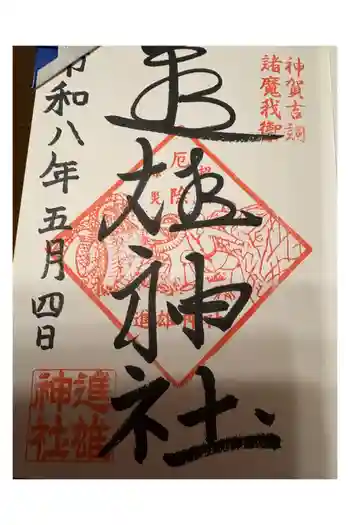 神賀吉詞
諸魔我御
進雄神社
厄除
令和八年五月四日
進雄
神社